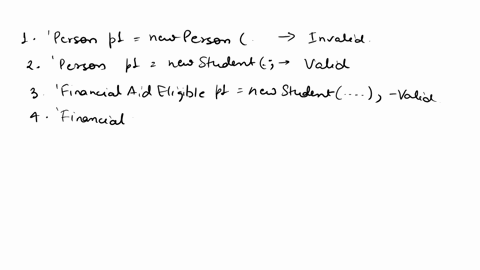 1. 'Person p1 = new Person (. → Invalid.
2. 'Person p1 = new Student (; → Valid
3 'Financial Aid Eligible p1 = new Student (....), - Valid
4. 'Financial